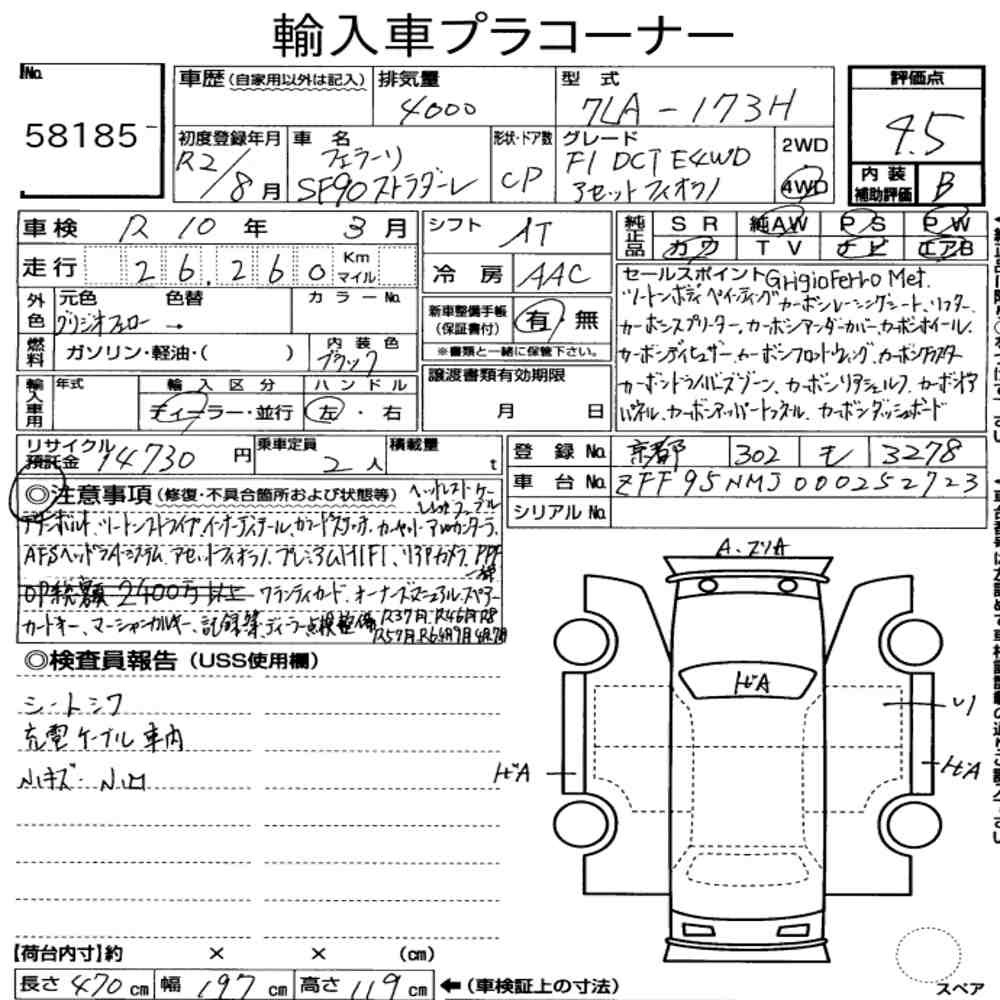 輸入車プラコーナー
No.
58185
車歴(自家用以外は記入)
排気量
4000
型 式
7LA-173H
評価点
4.5
初度登録年月
R2/8月
車 名
フェラーリ
SF90 ストラダーレ
形状・ドア数
CP
グレード
F1 DCT E4WD
アセットフィオラノ
2WD
4WD
内 装
補助評価
B
車検 R 10 年 3 月
走行 26,260 Km マイル
外色
元色 色替
グリジオフェロー →
カラーNo.
燃料
ガソリン・軽油・( )
内 装 色
ブラック
輸入車用
年式
輸 入 区 分
ディーラー・並行
ハ ン ド ル
左・右
シフト AT
冷 房 AAC
新車整備手帳
(保証書付)
有・無
※書類と一緒に保管下さい。
譲渡書類有効期限
月 日
純正品
S R 純AW P S P W
カワ T V ナビ エアB
セールスポイント GrigioFerro Met.
ツートンボディペインティング カーボンレーシングシート、リフター、
カーボンスプリッター、カーボンアンダーカバー、カーボンホイール、
カーボンディフューザー、カーボンフロントウィング、カーボン
カーボンドライバーズゾーン、カーボンリアシェルフ、カーボンドア
パネル、カーボンアッパートンネル、カーボンダッシュボード
リサイクル
預託金 14730 円
乗車定員
2 人
積載量
t
登 録 No. 京都 302 モ 3278
車 台 No. ZFF95NMJ000252723
シリアル No.
◎注意事項(修復・不具合箇所および状態等)
チタンボルト、ツートンストライプ、インナーディテール、カラードステッチ、カーペット アルカンターラ、
AFSヘッドライトシステム、アセットフィオラノ、プレミアムHIFI、リアカメラ、PPF
一部
OP総額 2400万以上 ワランティカード、オーナーズマニュアル、スペアー
カードキー、マーシャンカルキー、記録簿、ディーラー点検整備
R3.7月.R4.6月.R
R5.7月.R6
◎検査員報告(USS使用欄)
シートシワ
充電ケーブル車内
小キズ・小凹
A・スリA
トビA
スリ
トビA
トビA
【荷台内寸】約 × × (cm)
長さ 470 cm 幅 197 cm 高さ 119 cm ←(車検証上の寸法)
スペア